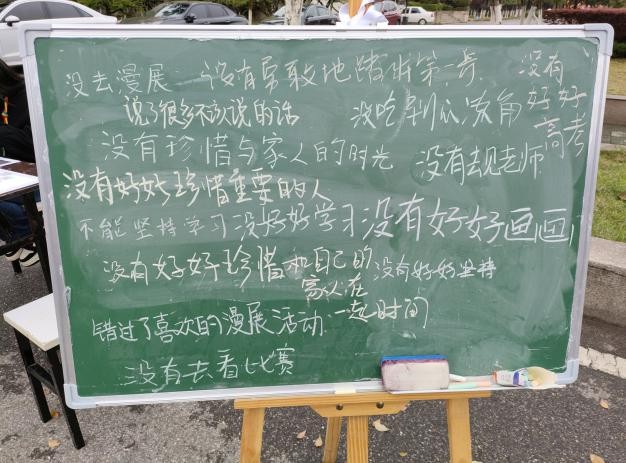 没去漫展 没有勇敢地踏出第一步 没有
说了很多不该说的话 没吃到 好好
高考
没有珍惜与家人的时光 没有去见老师
没有好好珍惜重要的人
不能坚持学习 没好好学习 没有好好画画
没有好好珍惜和自己的 没有好好坚持
家人在
错过了喜欢的漫展活动 一起时间
没有去看比赛